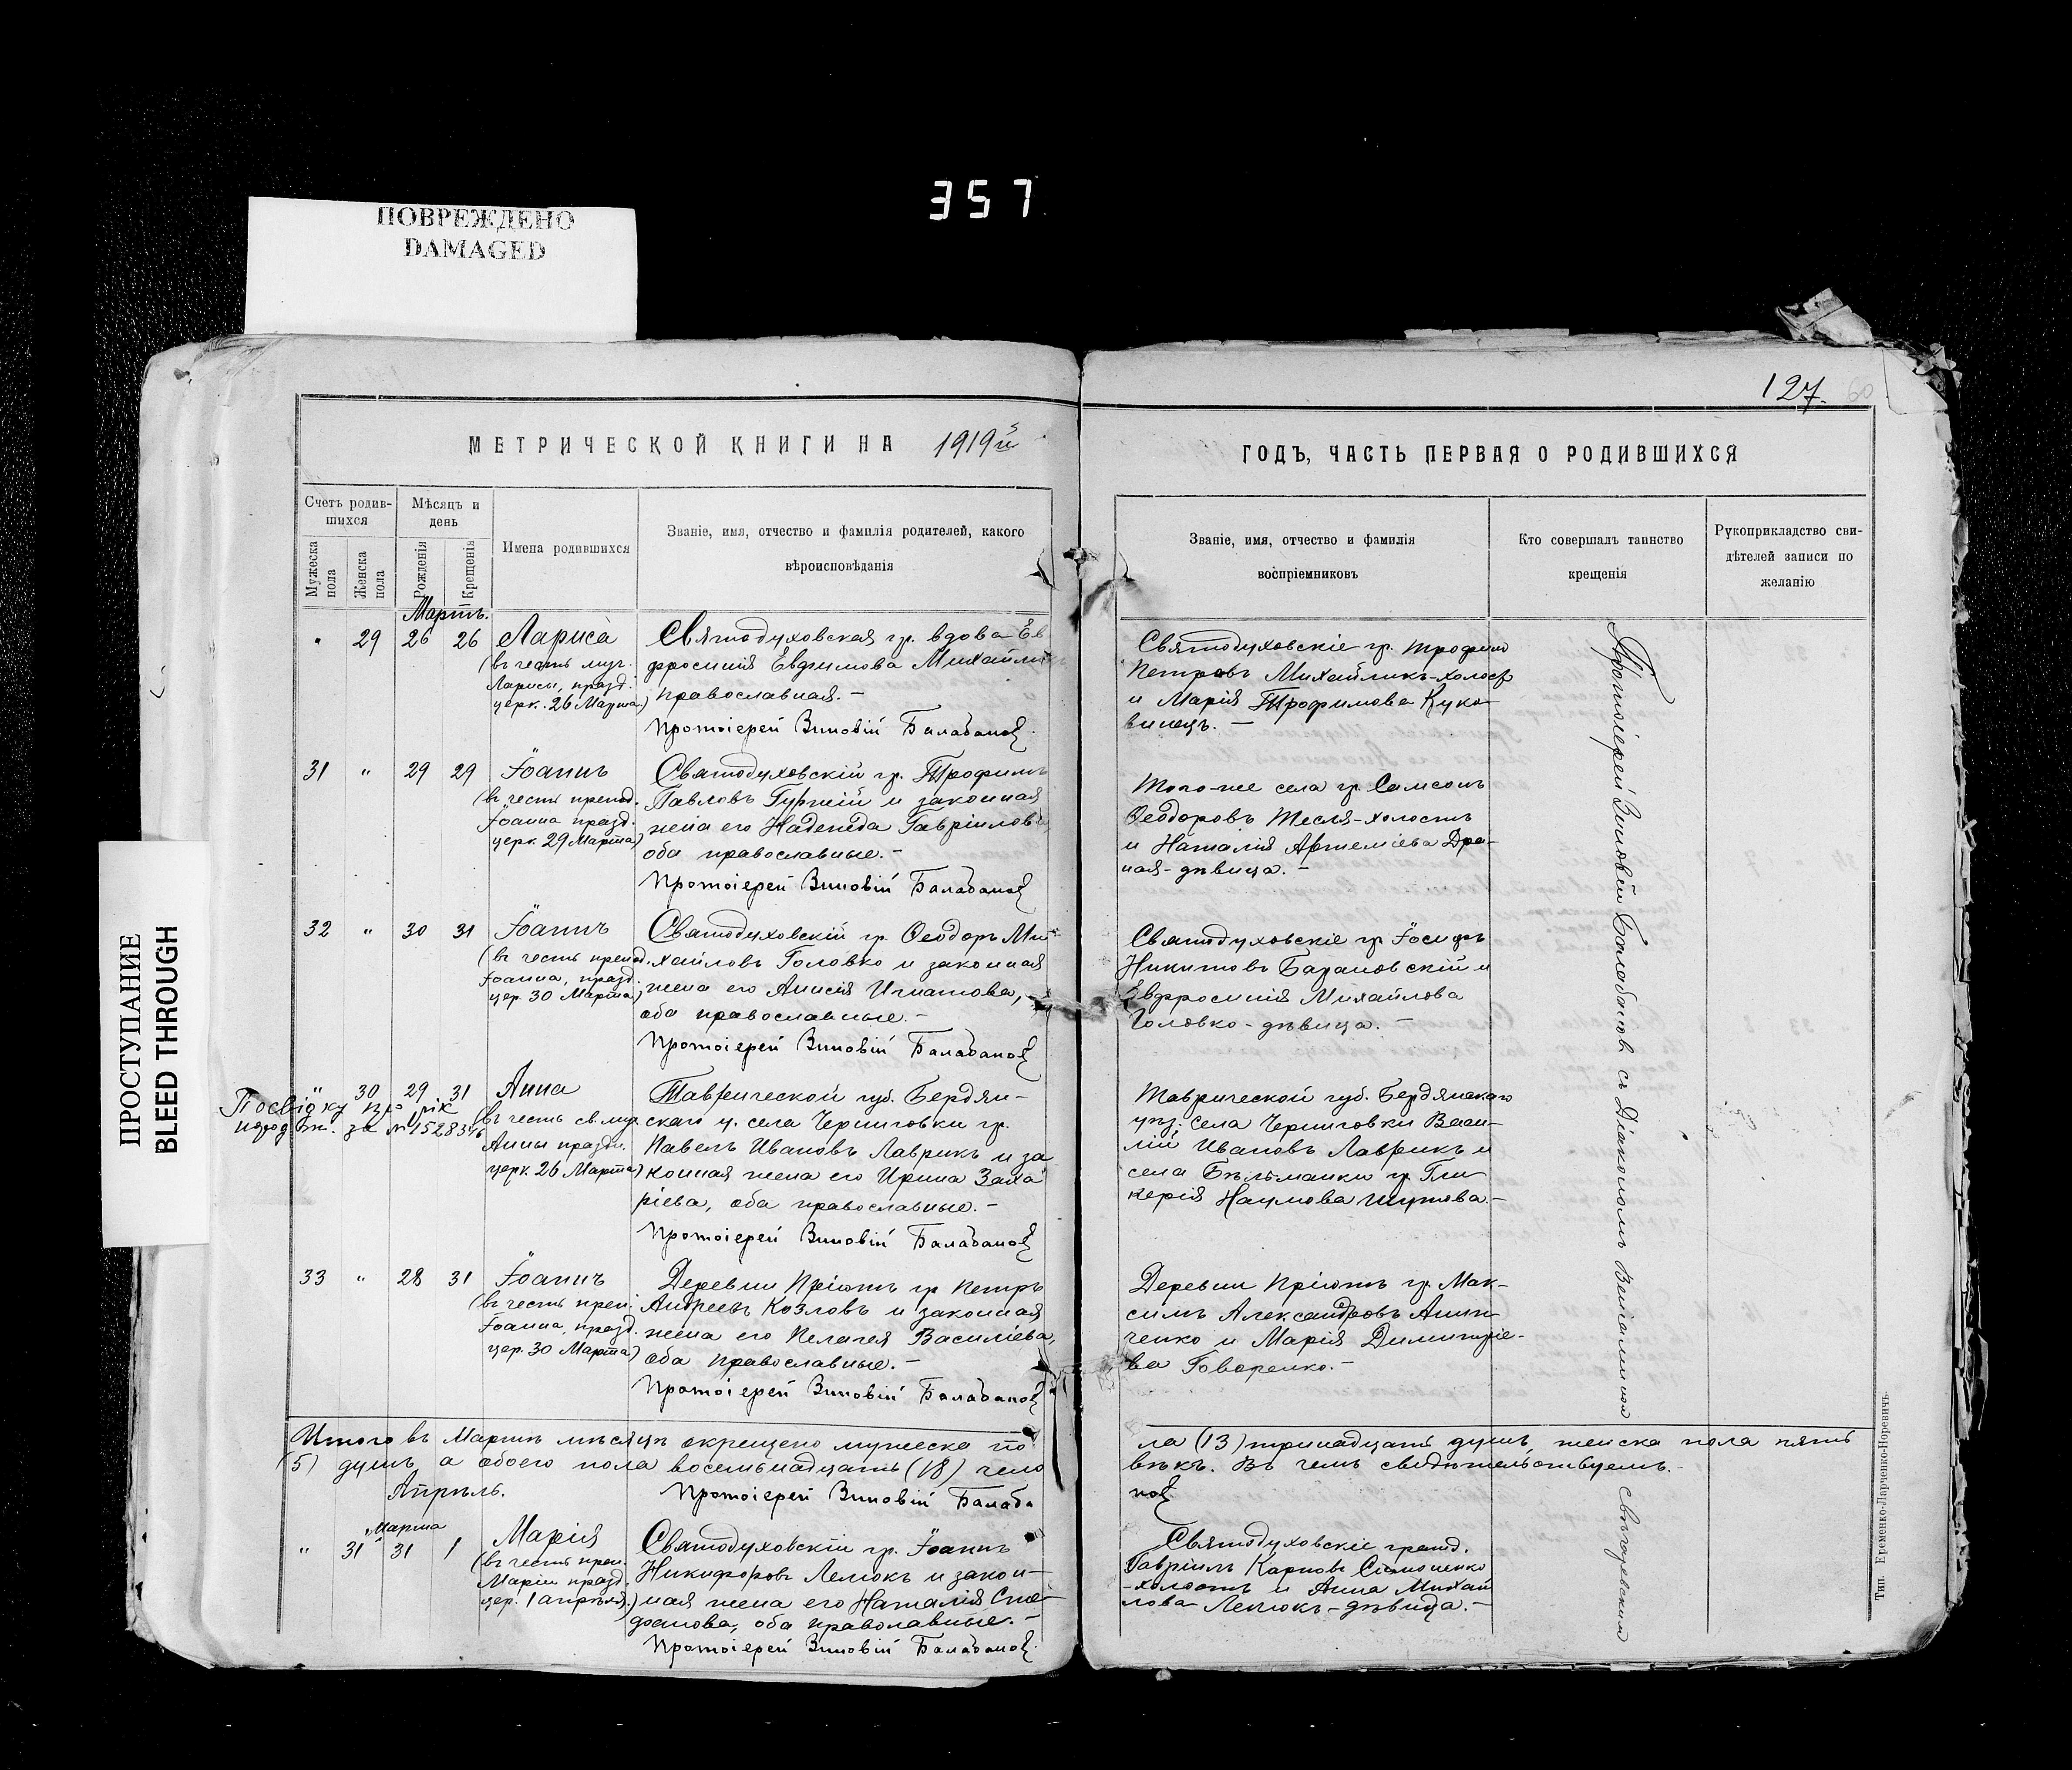 357
ПОВРЕЖДЕНО
DAMAGED
ПРОСТУПАНИЕ
BLEED THROUGH
127.
60
МЕТРИЧЕСКОЙ КНИГИ НА 1919й
Счетъ родив-
шихся
Мѣсяцъ и
день
Мужеска
пола
Женска
пола
Рожденія
Крещенія
Имена родившихся
Званіе, имя, отчество и фамилія родителей, какого
вѣроисповѣданія
Мартъ.
" 29 26 26
Лариса
(въ честь муч.
Ларисы, празд.
церк. 26 Марта)
Святодуховская гр. вдова Ев
фросинія Евфимова Михайли
православная.—
Протоіерей Зиновій Балабановъ
31 " 29 29
Іоаннъ
(въ честь препод.
Іоанна празд.
церк. 29 Марта)
Святодуховскій гр. Трофимъ
Павловъ и законная
жена его Надежда Гавріилова
оба православные.—
Протоіерей Зиновій Балабановъ
32 " 30 31
Іоаннъ
(въ честь препод.
Іоанна, празд.
цер. 30 Марта)
Святодуховскій гр. Ѳеодоръ Ми-
хайловъ Головко и законная
жена его Анисія Игнатова,
оба православные.—
Протоіерей Зиновій Балабановъ
" 30 29 31
Посвідку про рік
народж. за № 1528346
Анна
(въ честь св. муч.
Анны праздн.
церк. 26 Марта)
Таврической губ. Бердян-
скаго у. села Черниговки гр.
Павелъ Ивановъ Лаврикъ и за
конная жена его Ирина Заха
ріева, оба православные.—
Протоіерей Зиновій Балабановъ
33 " 28 31
Іоаннъ
(въ честь преп.
Іоанна, празд.
цер. 30 Марта)
Деревни Пріютъ гр Петръ
Андреевъ Козловъ и законная
жена его Пелагея Василіева,
оба православные.—
Протоіерей Зиновій Балабановъ
Итого въ Мартѣ мѣсяцѣ окрещено мужеска по
(5) душъ, а обоего пола восемьнадцать (18) чело
Апрѣль.
Протоіерей Зиновій Балаба
Марта
" 31 31 1
Марія
(въ честь преп.
Маріи празд.
цер. 1 апрѣля.)
Святодуховскій гр. Іоаннъ
Никифоровъ Лемокъ и закон-
ная жена его Наталія Сте
фанова, оба православные.—
Протоіерей Зиновій Балабановъ
ГОДЪ, ЧАСТЬ ПЕРВАЯ О РОДИВШИХСЯ
Званіе, имя, отчество и фамилія
воспріемниковъ
Кто совершалъ таинство
крещенія
Рукоприкладство сви-
дѣтелей записи по
желанію
Святодуховскіе гр. Трофимъ
Петровъ Михайликъ-холост
и Марія Трофимова Куко-
винецъ.—
Того-же села гр. Самсонъ
Ѳеодоровъ Тесля-холостъ
и Наталія Артеміева Дра-
ная-дѣвица.—
Святодуховскіе гр Іосифъ
Никитовъ Барановскій и
Евфросинія Михайлова
Головко-дѣвица.—
Таврической губ. Бердянскаго
уѣз. села Черниговки Васи-
лій Ивановъ Лаврикъ и
села Бѣльманки гр. Гли
керія Наумова Шутова.—
Деревни Пріютъ гр. Мак-
симъ Александровъ Анин-
ченко и Марія Димитріе-
ва Говоренко.—
ла (13) тринадцать душъ, женска пола пять
вѣкъ. Въ чемъ свидѣтельствуемъ.—
новъ
Святодуховскіе гражд.
Гавріилъ Карповъ Симоненко
-холостъ и Анна Михай
лова Лемокъ-дѣвица.—
Протоіерей Зиновій Балабановъ съ Діакономъ Веніаминомъ
Тип. Еременко-Ларченко-Норевичъ.